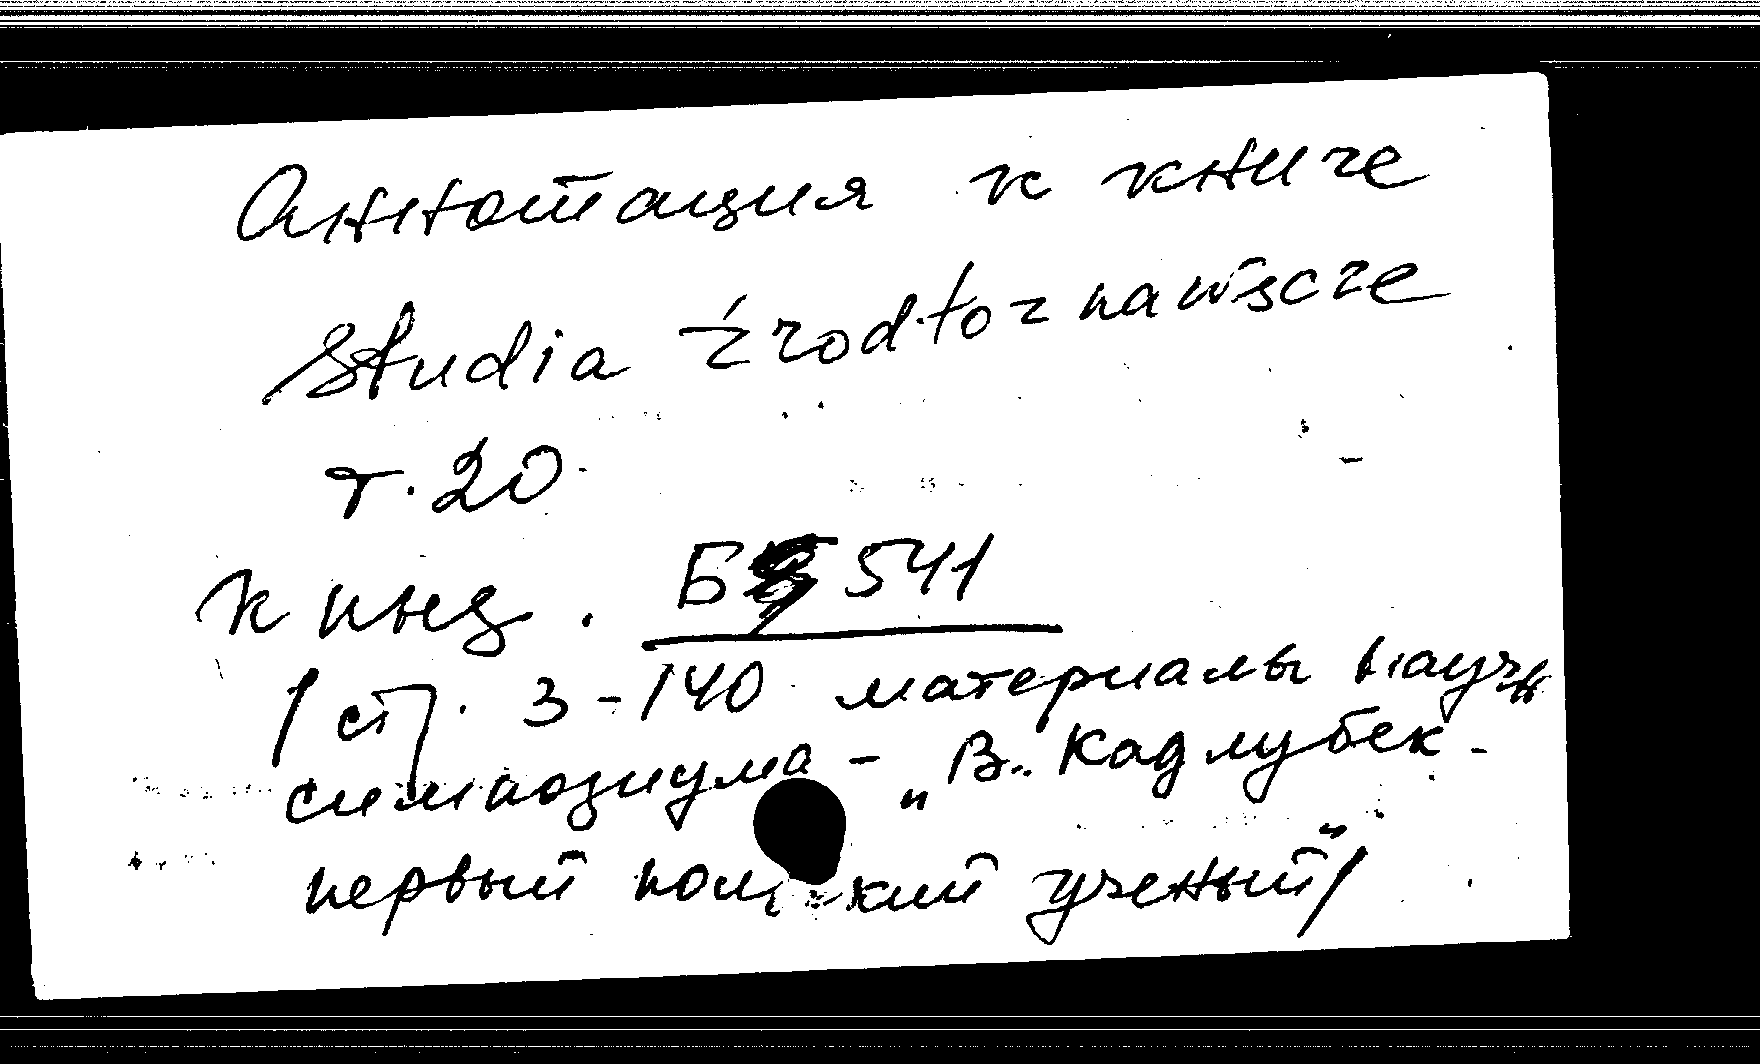 Аннотация к книге
Studia źrodłoznawscze
т. 20
к инв. Б 541
/стр. 3-140 материалы научн
симпозиума - "В. Кадлубек -
первый польский ученый"/